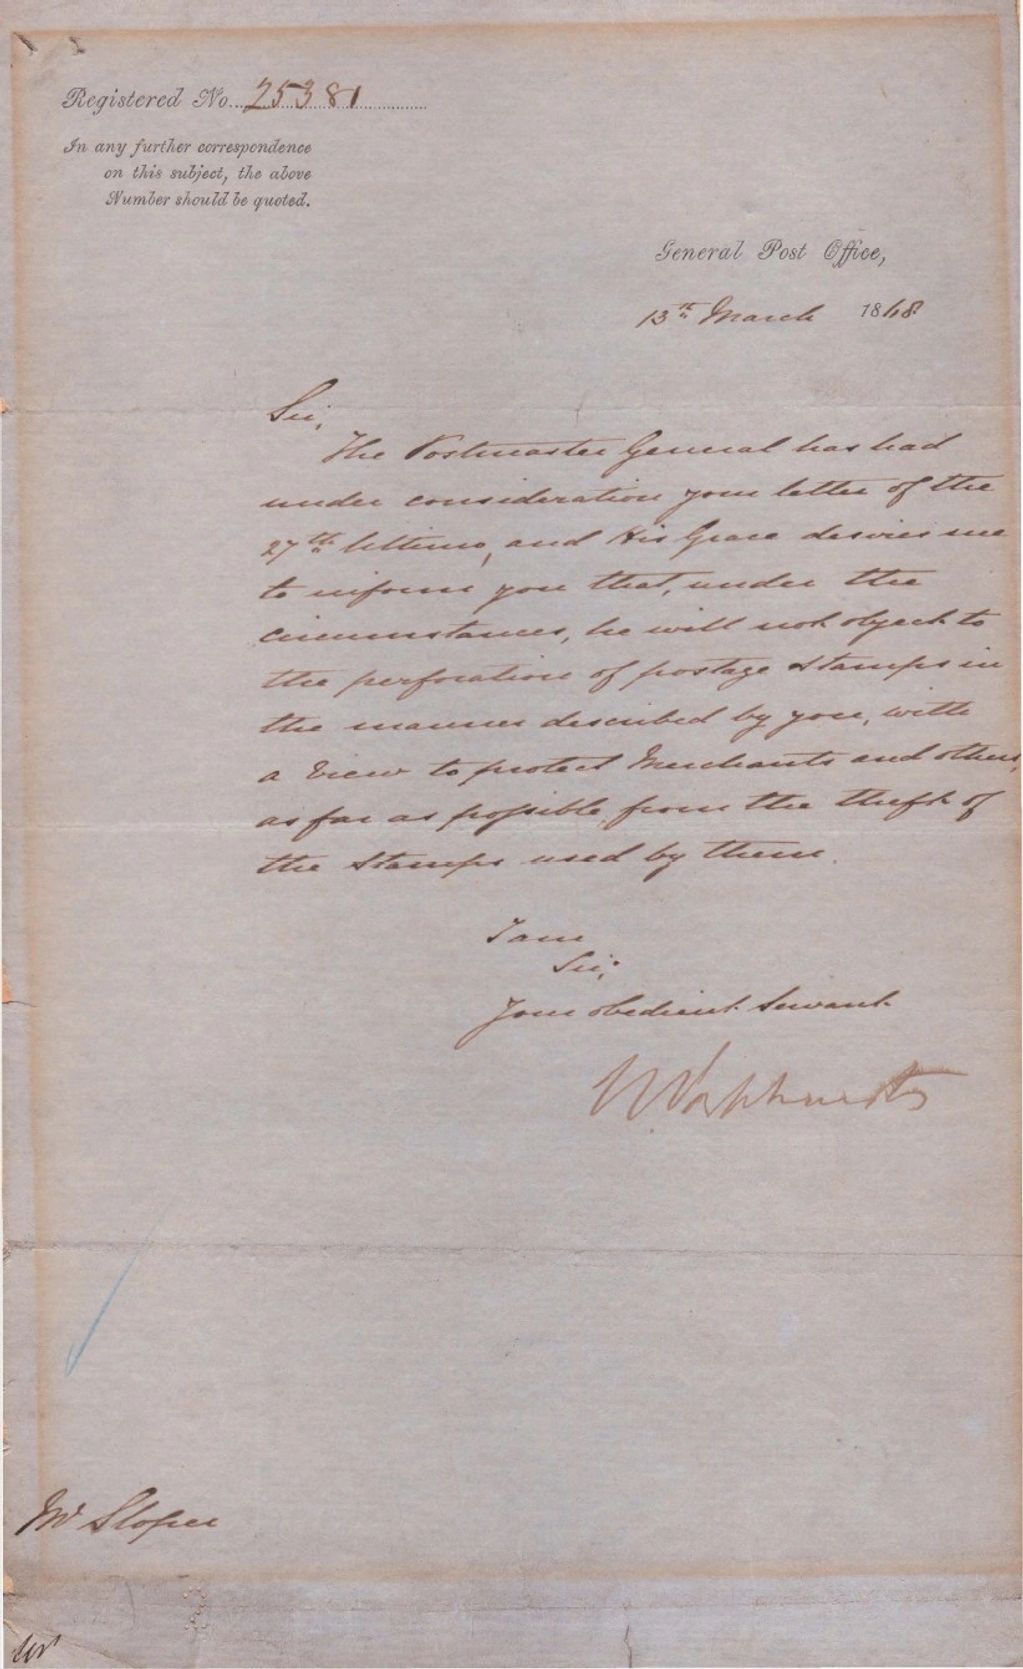 Registered No. 25381
In any further correspondence
on this subject, the above
Number should be quoted.
General Post Office,
13th March 1868
Sir,
The Postmaster General has had
under consideration your letter of the
27th Ultimo, and His Grace desires me
to inform you that, under the
circumstances, he will not object to
the perforation of postage stamps in
the manner described by you, with
a view to protect Merchants and others,
as far as possible, from the theft of
the Stamps used by them.
I am
Sir,
Your obedient Servant
Mr Sloper